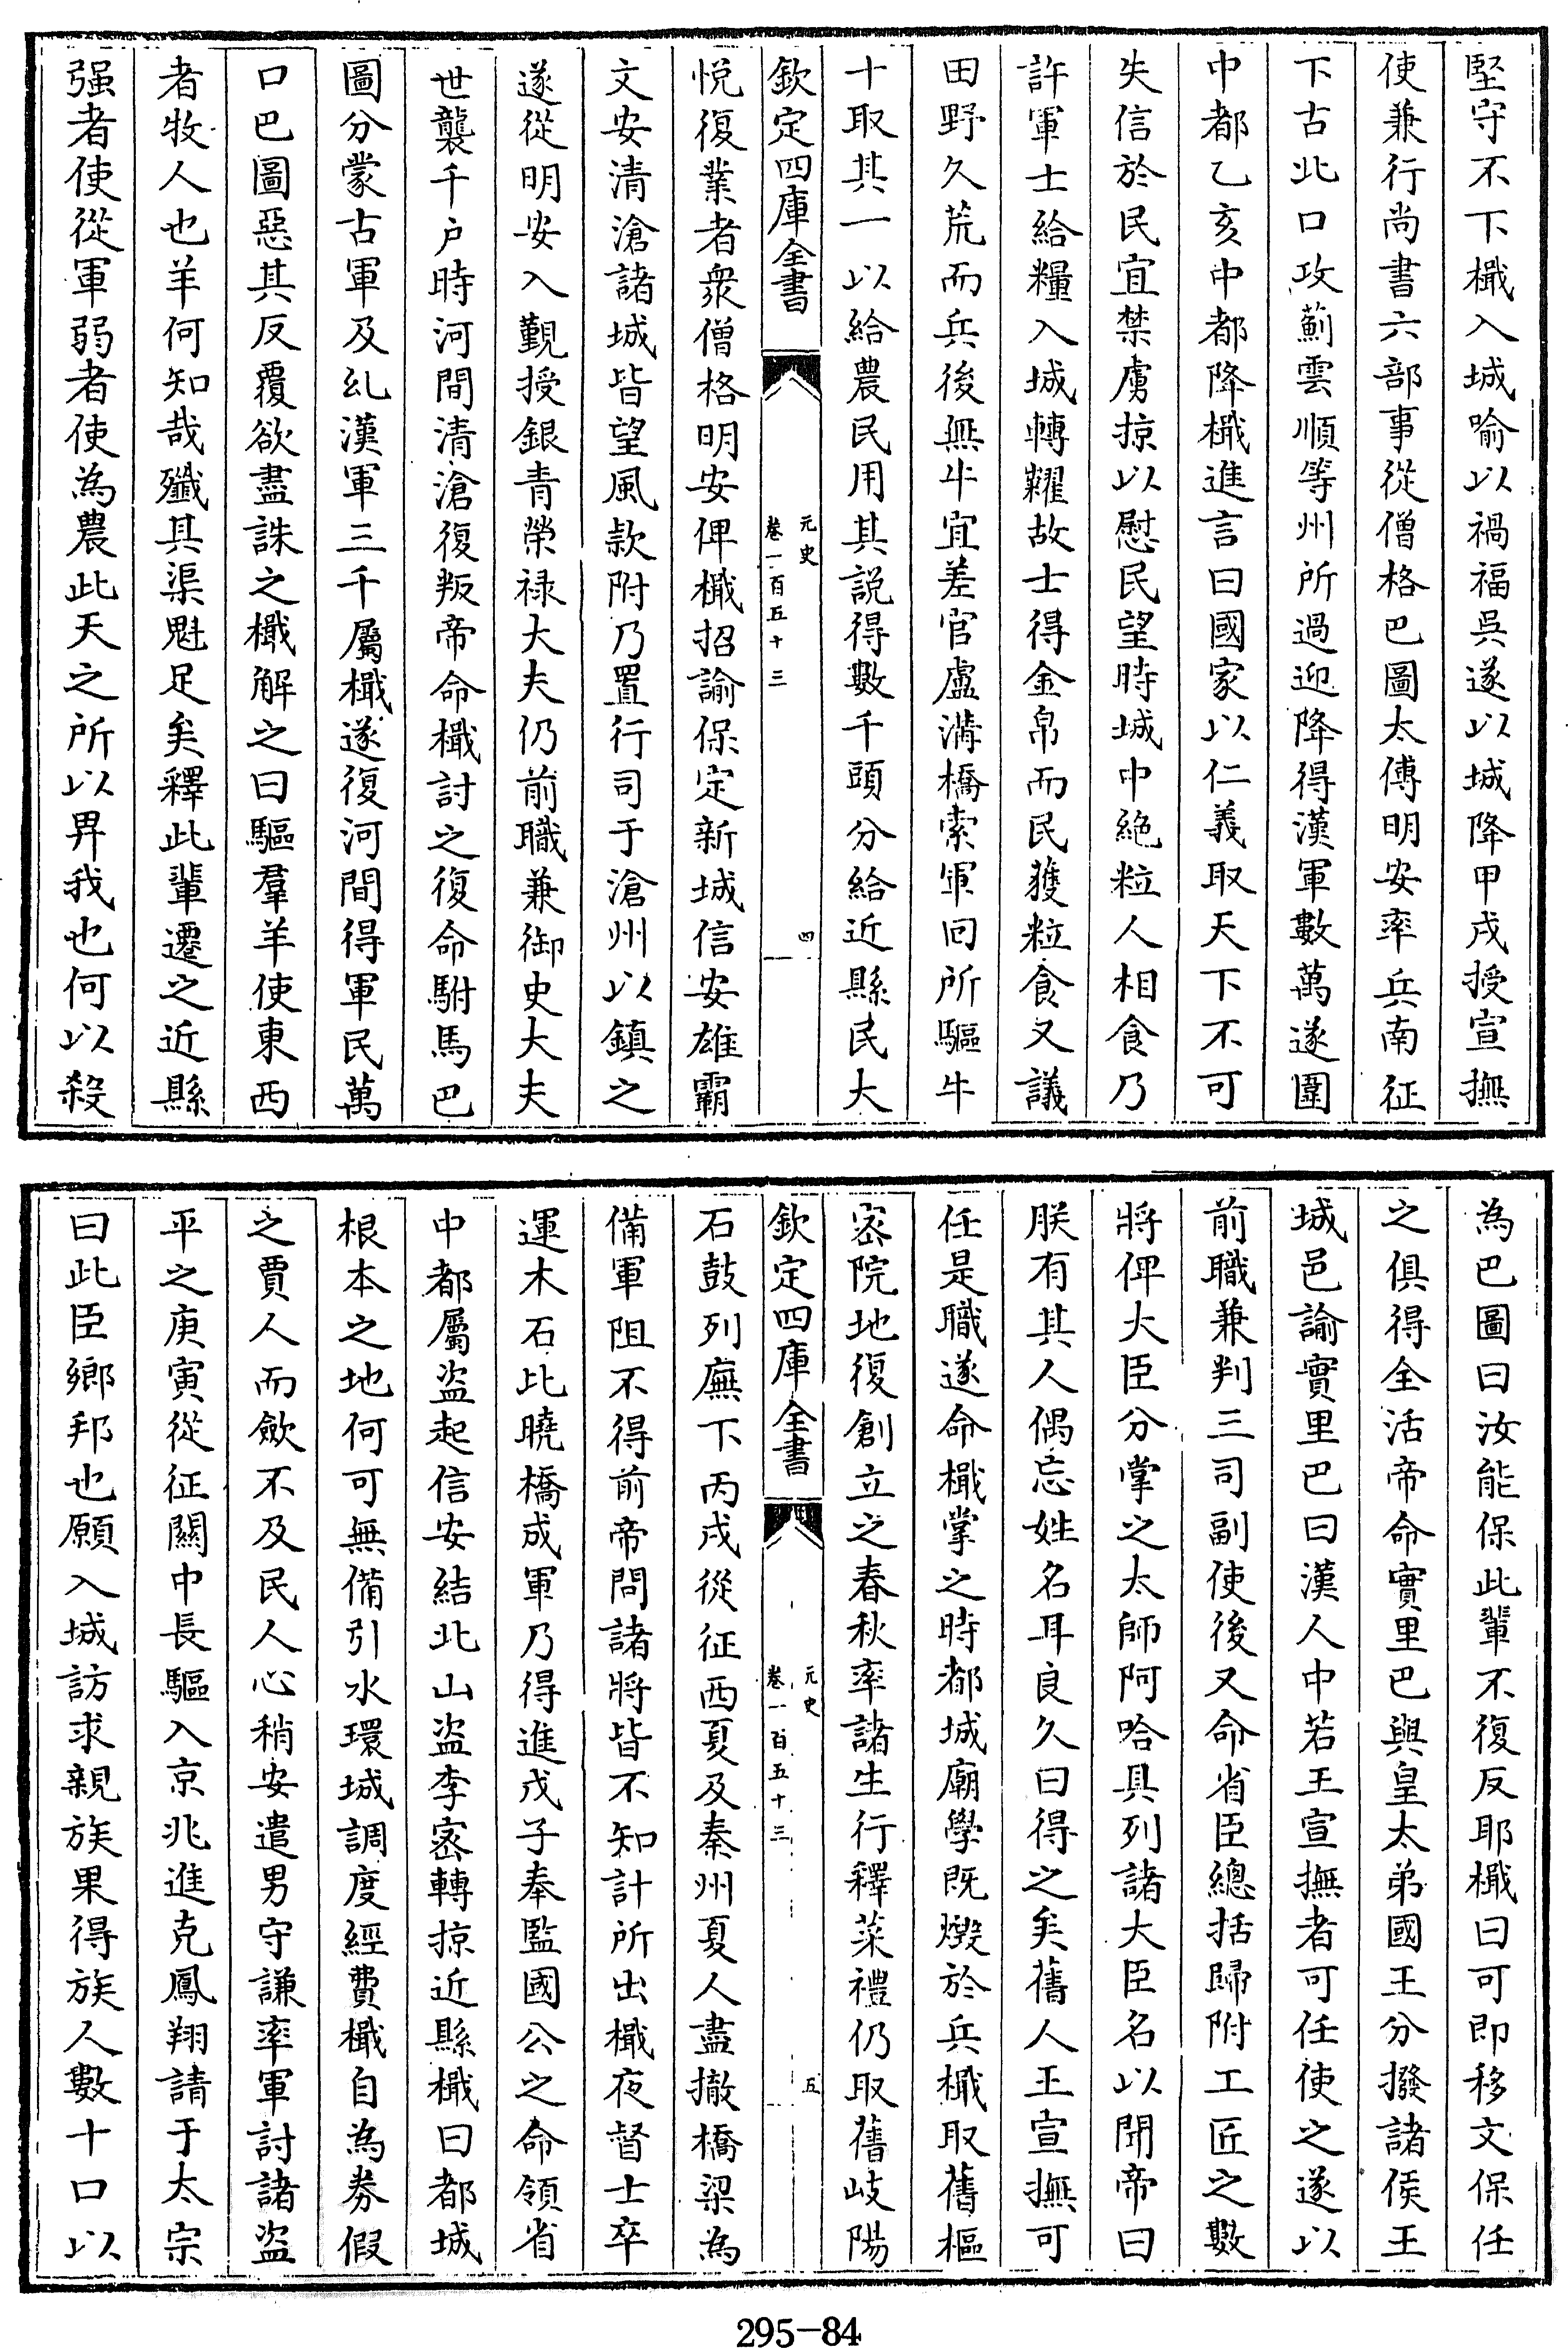 堅守不下檝入城喻以禍福吳遂以城降甲戌授宣撫
使兼行尚書六部事從僧格巴圖太傅明安率兵南征
下古北口攻薊雲順等州所過迎降得漢軍數萬遂圍
中都乙亥中都降檝進言曰國家以仁義取天下不可
失信於民宜禁虜掠以慰民望時城中絶粒人相食乃
許軍士給糧入城轉糶故士得金帛而民獲粒食又議
田野久荒而兵後無牛宜差官盧溝橋索軍回所驅牛
十取其一以給農民用其説得數千頭分給近縣民大
欽定四庫全書
元史
卷一百五十三
四
悦復業者衆僧格明安俾檝招諭保定新城信安雄霸
文安清滄諸城皆望風款附乃置行司于滄州以鎮之
遂從明安入覲授銀青榮禄大夫仍前職兼御史大夫
世襲千户時河間清滄復叛帝命檝討之復命駙馬巴
圖分蒙古軍及糺漢軍三千屬檝遂復河間得軍民萬
口巴圖惡其反覆欲盡誅之檝解之曰驅羣羊使東西
者牧人也羊何知哉殲其渠魁足矣釋此輩遷之近縣
强者使從軍弱者使為農此天之所以畀我也何以殺
為巴圖曰汝能保此輩不復反耶檝曰可即移文保任
之俱得全活帝命實里巴與皇太弟國王分撥諸侯王
城邑諭實里巴曰漢人中若王宣撫者可任使之遂以
前職兼判三司副使後又命省臣總括歸附工匠之數
將俾大臣分掌之太師阿哈具列諸大臣名以聞帝曰
朕有其人偶忘姓名耳良久曰得之矣舊人王宣撫可
任是職遂命檝掌之時都城廟學既燬於兵檝取舊樞
宻院地復創立之春秋率諸生行釋菜禮仍取舊岐陽
欽定四庫全書
元史
卷一百五十三
五
石鼓列廡下丙戌從征西夏及秦州夏人盡撤橋梁為
備軍阻不得前帝問諸將皆不知計所出檝夜督士卒
運木石比曉橋成軍乃得進戊子奉監國公之命領省
中都屬盗起信安結北山盗李宻轉掠近縣檝曰都城
根本之地何可無備引水環城調度經費檝自為券假
之賈人而斂不及民人心稍安遣男守謙率軍討諸盗
平之庚寅從征關中長驅入京兆進克鳳翔請于太宗
曰此臣鄉邦也願入城訪求親族果得族人數十口以
295-84